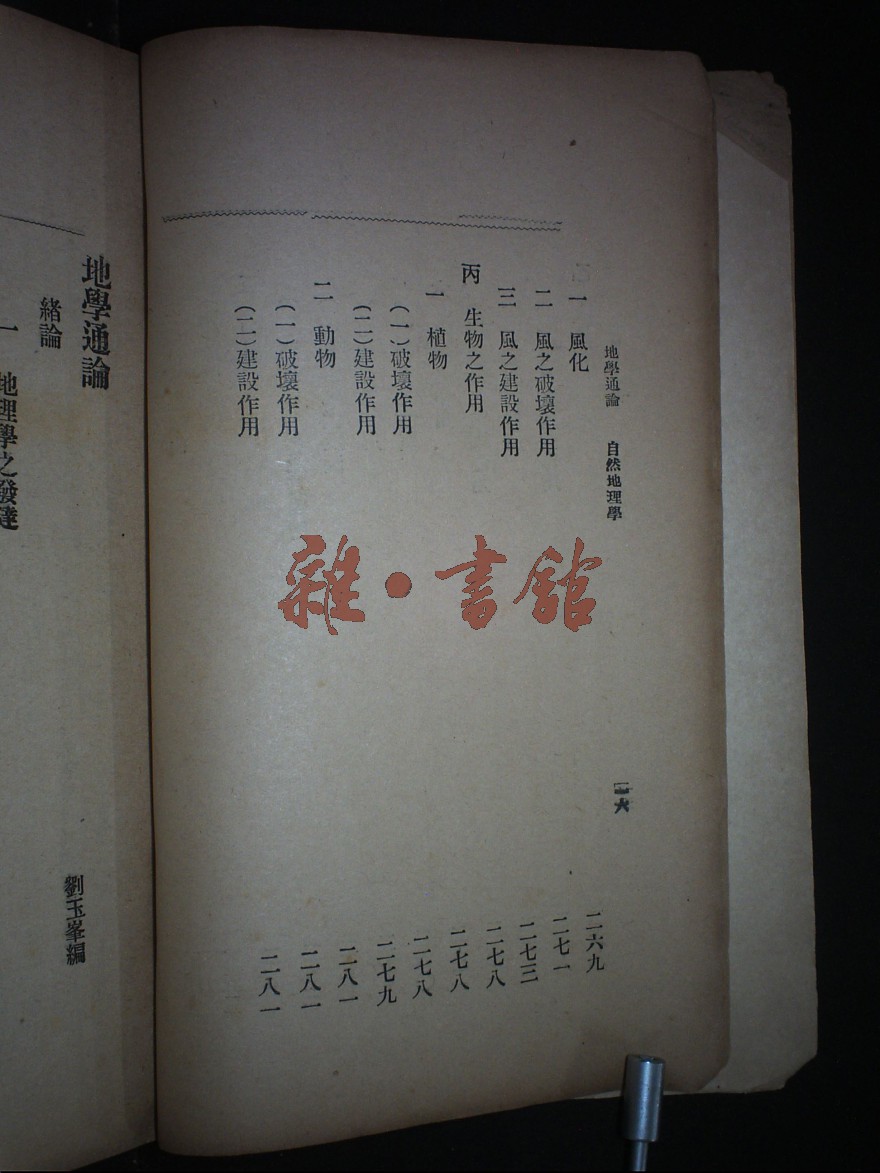 地學通論　自然地理學　一六
一　風化　二六九
二　風之破壞作用　二七一
三　風之建設作用　二七三
丙　生物之作用　二七八
一　植物　二七八
（一）破壞作用　二七八
（二）建設作用　二七九
二　動物　二八一
（一）破壞作用　二八一
（二）建設作用　二八一
雜·書館
地學通論
劉玉峯編
緒論
一　地理學之發達